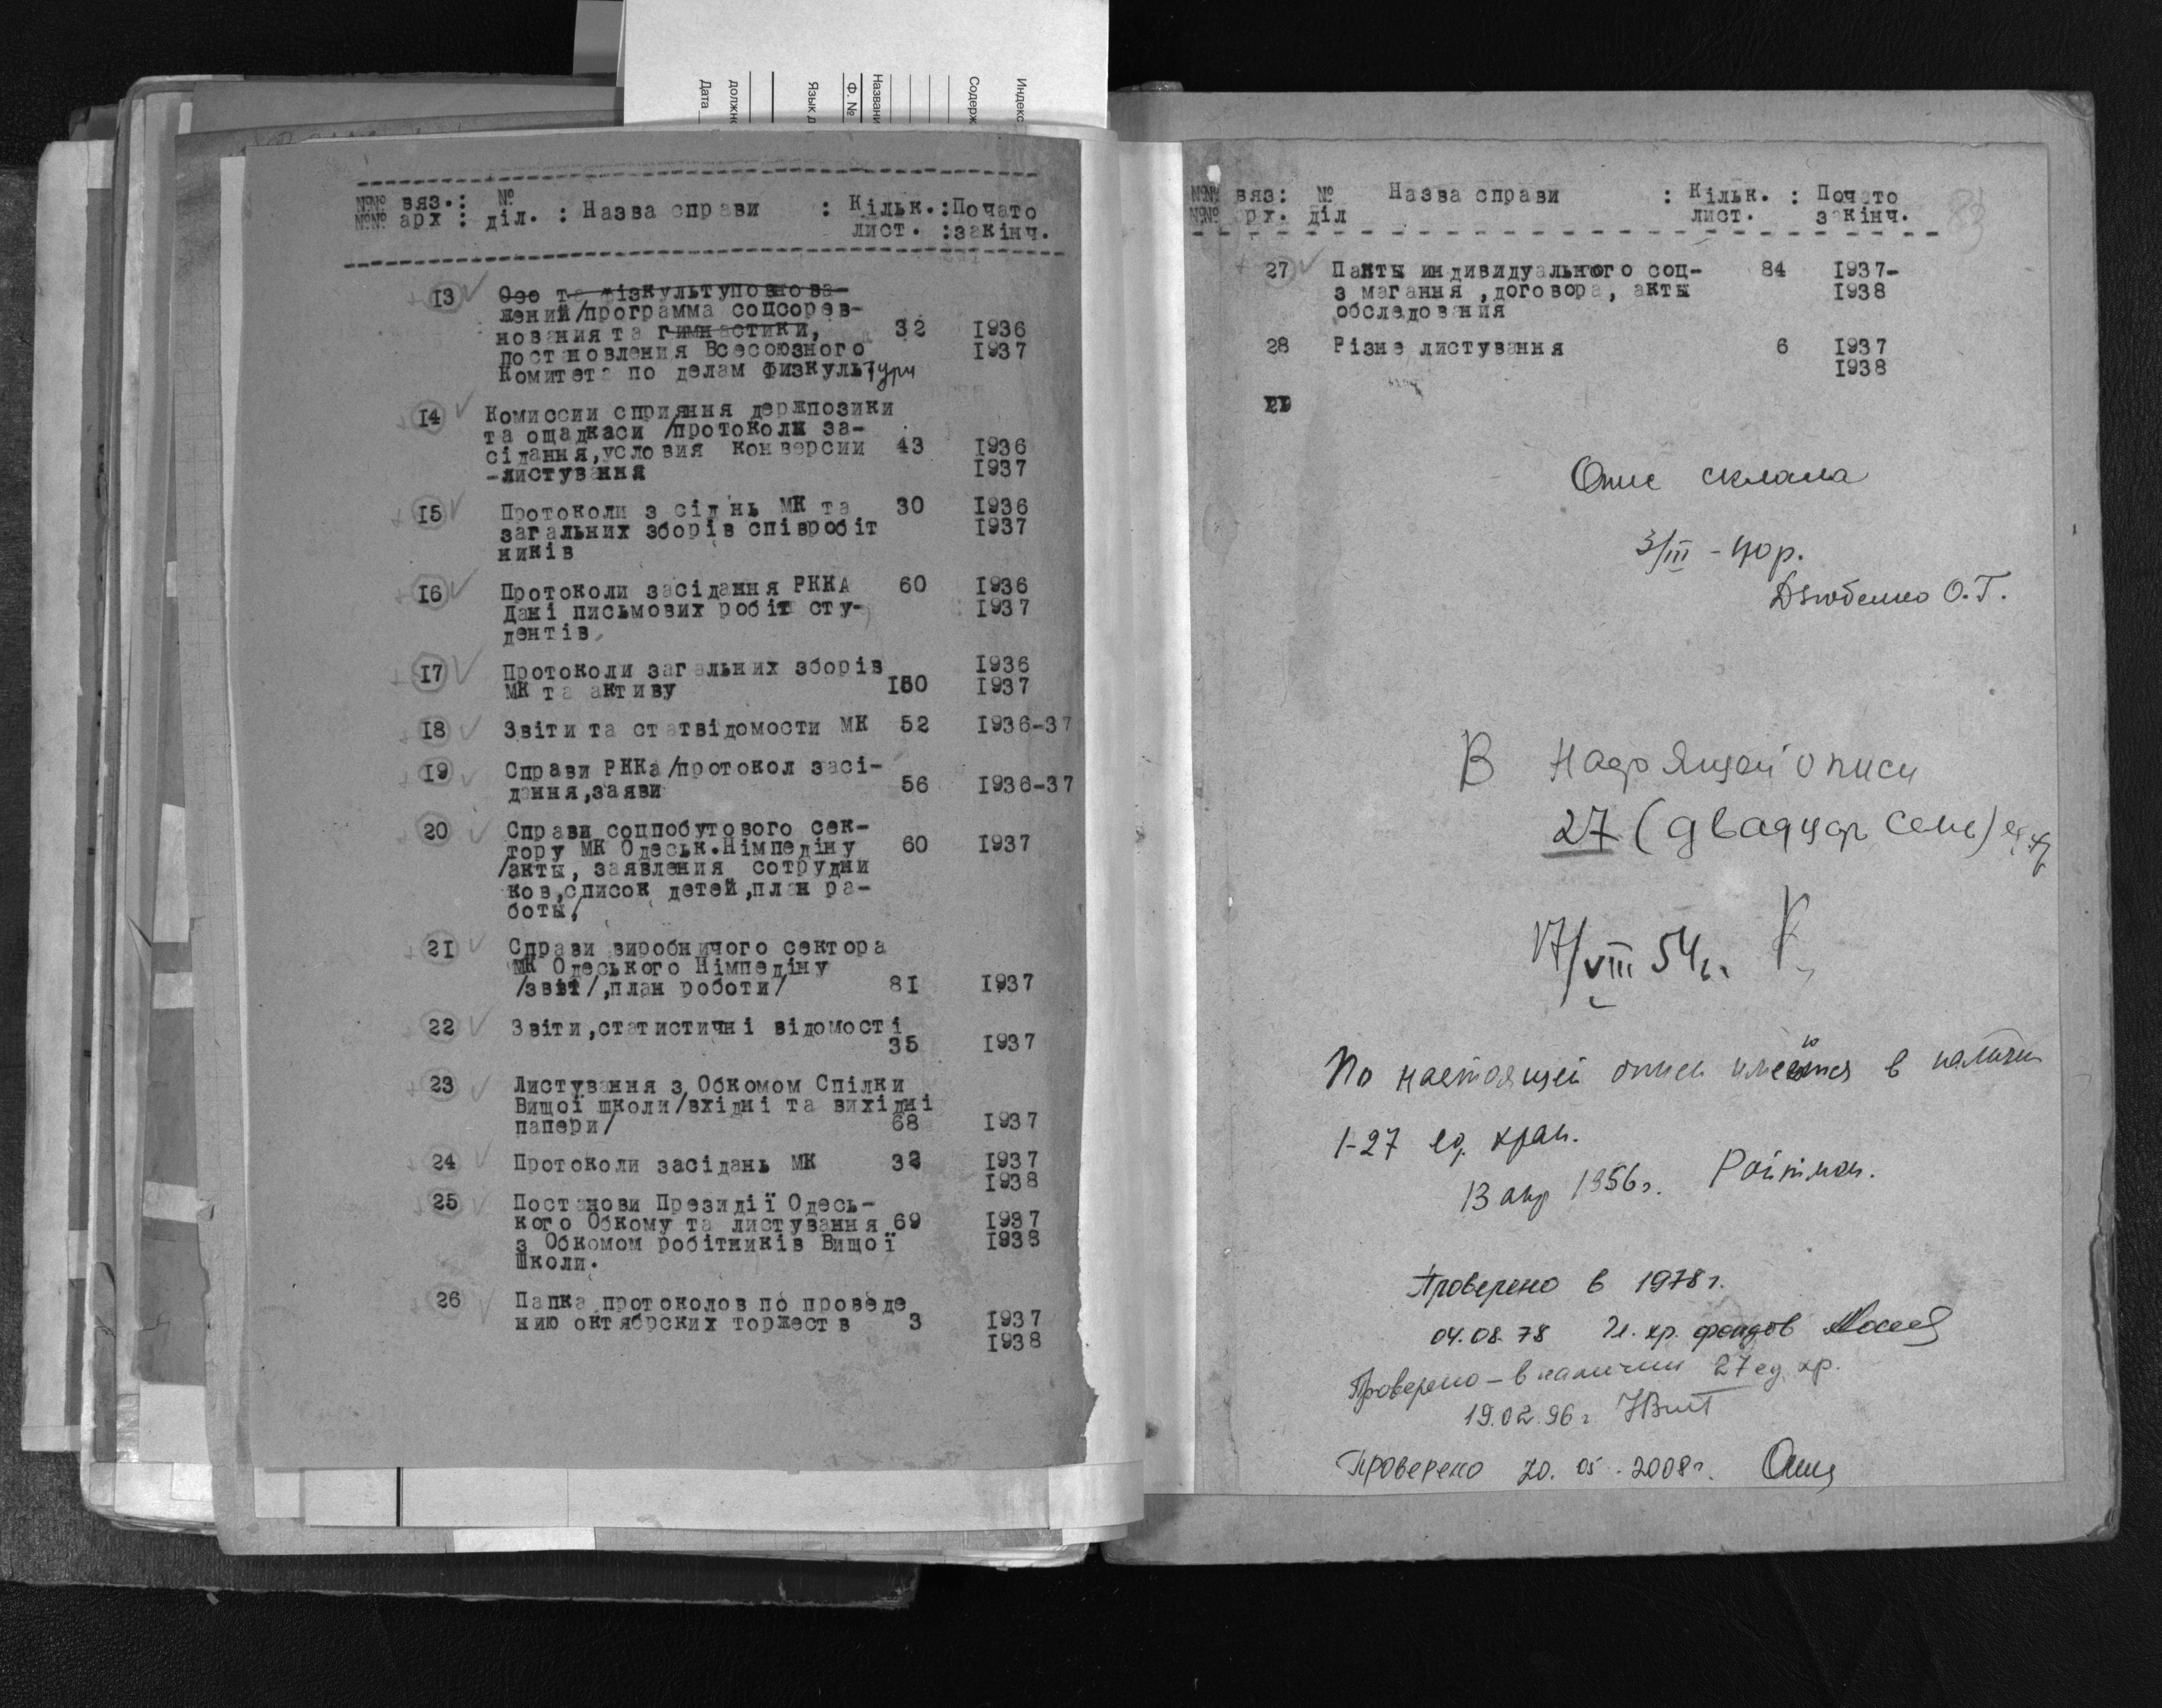 Индекс
Содерж
Названи
Ф. №
Язык д
должно
Дата
№№ вяз.: №
№№ арх : діл. : Назва справи : Кільк.:Почато
лист. :закінч.
13 Озо та фізкультуповнова-
жений/программа соцсорев-
нования та гимнастики, 32 1936
постановления Всесоюзного 1937
Комитета по делам физкультури
14 Комиссии сприяння держпозики
та ощадкаси /протоколи за-
сідання,условия конверсии 43 1936
-листування 1937
15 Протоколи засідань МК та 30 1936
загальних зборів співробіт 1937
ників
16 Протоколи засідання РККА 60 1936
Дані письмових робіт сту- 1937
дентів
17 Протоколи загальних зборів 1936
МК та активу 150 1937
18 Звіти та статвідомости МК 52 1936-37
19 Справи РККа/протокол засі-
дання,заяви 56 1936-37
20 Справи соцпобутового сек-
тору МК Одеськ.Німпедіну 60 1937
/акты, заявления сотрудни
ков,список детей,план ра-
боты/
21 Справи виробничого сектора
МК Одеського Німпедіну
/звіт/,план роботи/ 81 1937
22 Звіти,статистичні відомості
35 1937
23 Листування з Обкомом Спілки
Вищої школи/вхідні та вихідні
папери/ 68 1937
24 Протоколи засідань МК 32 1937
1938
25 Постанови Президії Одесь-
кого Обкому та листування 69 1937
з Обкомом робітників Вищої 1938
Школи.
26 Папка протоколов по проведе
нию октябрских торжеств 3 1937
1938
№№ вяз: № Назва справи : Кільк. : Почато
№№ арх. діл лист. закінч.
83
27 Пакты индивидуального соц- 84 1937-
змагання ,договора, акты 1938
обследования
28 Різне листування 6 1937
1938
29
Опис склала
3/III - 40 р.
Дзюбенко О.Г.
В настоящей описи
27 (двадцать семь) ед. хр
17/VIII 54 г.
По настоящей описи имеются в наличии
1-27 ед. хран.
13 апр 1956 г. Ройтман.
Проверено в 1978 г.
04.08.78 Гл. хр. фондов
Проверено - в наличии 27 ед. хр.
19.02.96 г
Проверено 20. 05. 2008 г.